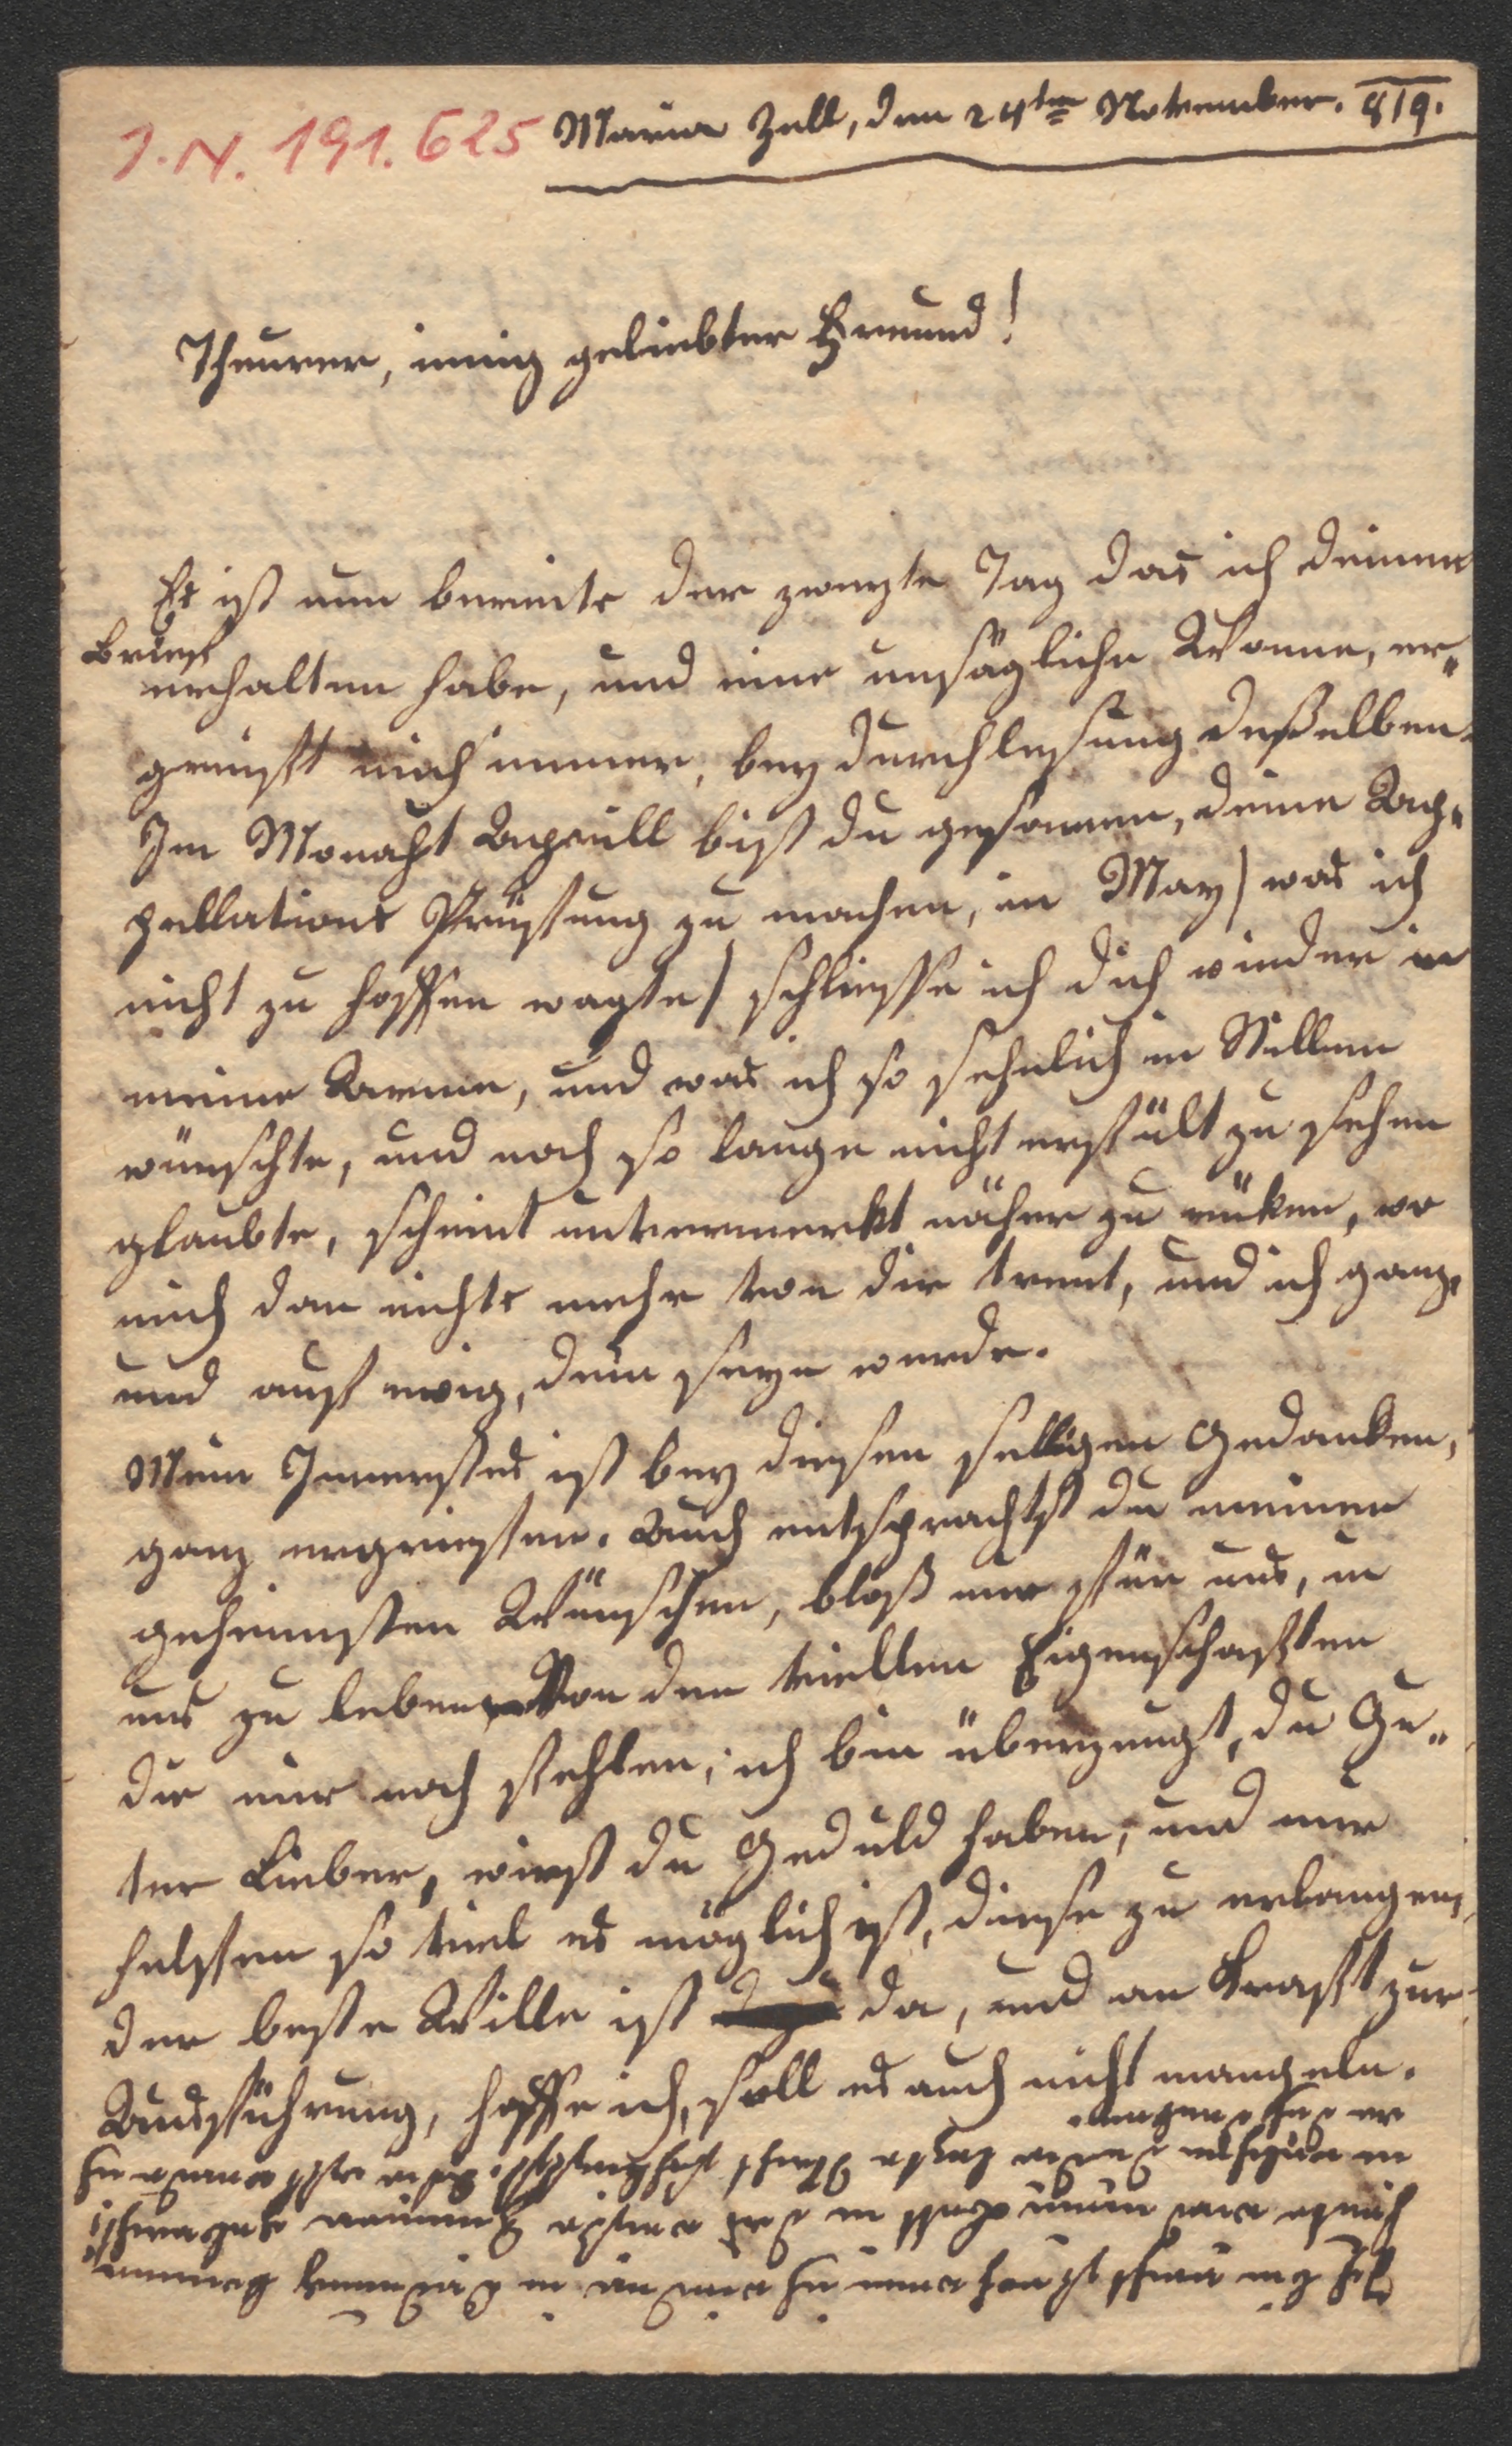 I. N. 191.625
Maria Zell, den 24ten November. 819.
Theurer, innig geliebter Freund!
Es ist nun bereits der zweyte Tag das ich deinen
Brief
erhalten habe, und eine unsägliche Wonne, er„
greift mich immer, bey durchlesung desselben.
Im Monaht Aprill bist du gesonnen, deine Ap„
pellations Prüfung zu machen, im May / was ich
nicht zu hoffen wagte / schliesse ich dich wieder in
meine Arme, und was ich so sehnlich im Stillen
wünschte, und noch so lange nicht erfült zu sehen
glaubte, scheint unvermerkt näher zu rüken, wo
mich dan nichts mehr von dir trent, und ich ganz,
und auf ewig, dein seyn werde.
Mein Innerstes ist bey diesen selligen Gedanken,
ganz ergriffen. Auch entsprachst du meinen
geheimsten Wünschen, bloß nur für uns, in
uns zu leben Von den viellen Eigenschaften
die mir noch fehlen, ich bin überzeugt, du Gu„
ter Lieber, wirst du Geduld haben, und mir
helfen so viel es möglich ist, diese zu erlangen,
der beste Wille ist da, und an Kraft zur
Ausführung, hoffe ich, soll es auch nicht mangeln.